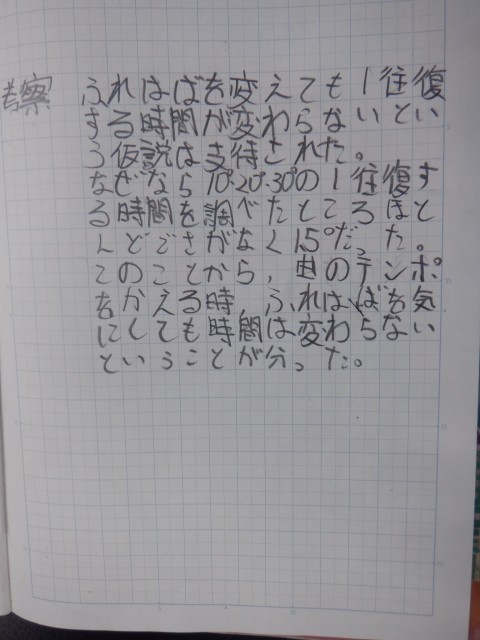 考察 ふれはばを変えても1往復
する時間が変わらないとい
う仮説は支待された。
なぜなら10°20°30°の1往復す
る時間を調べたところほと
んどごさがなく15°だった。
このことから,曲のテンポ
をかえる時、ふれはばを気
にしても時間は変わらない
ということが分った。